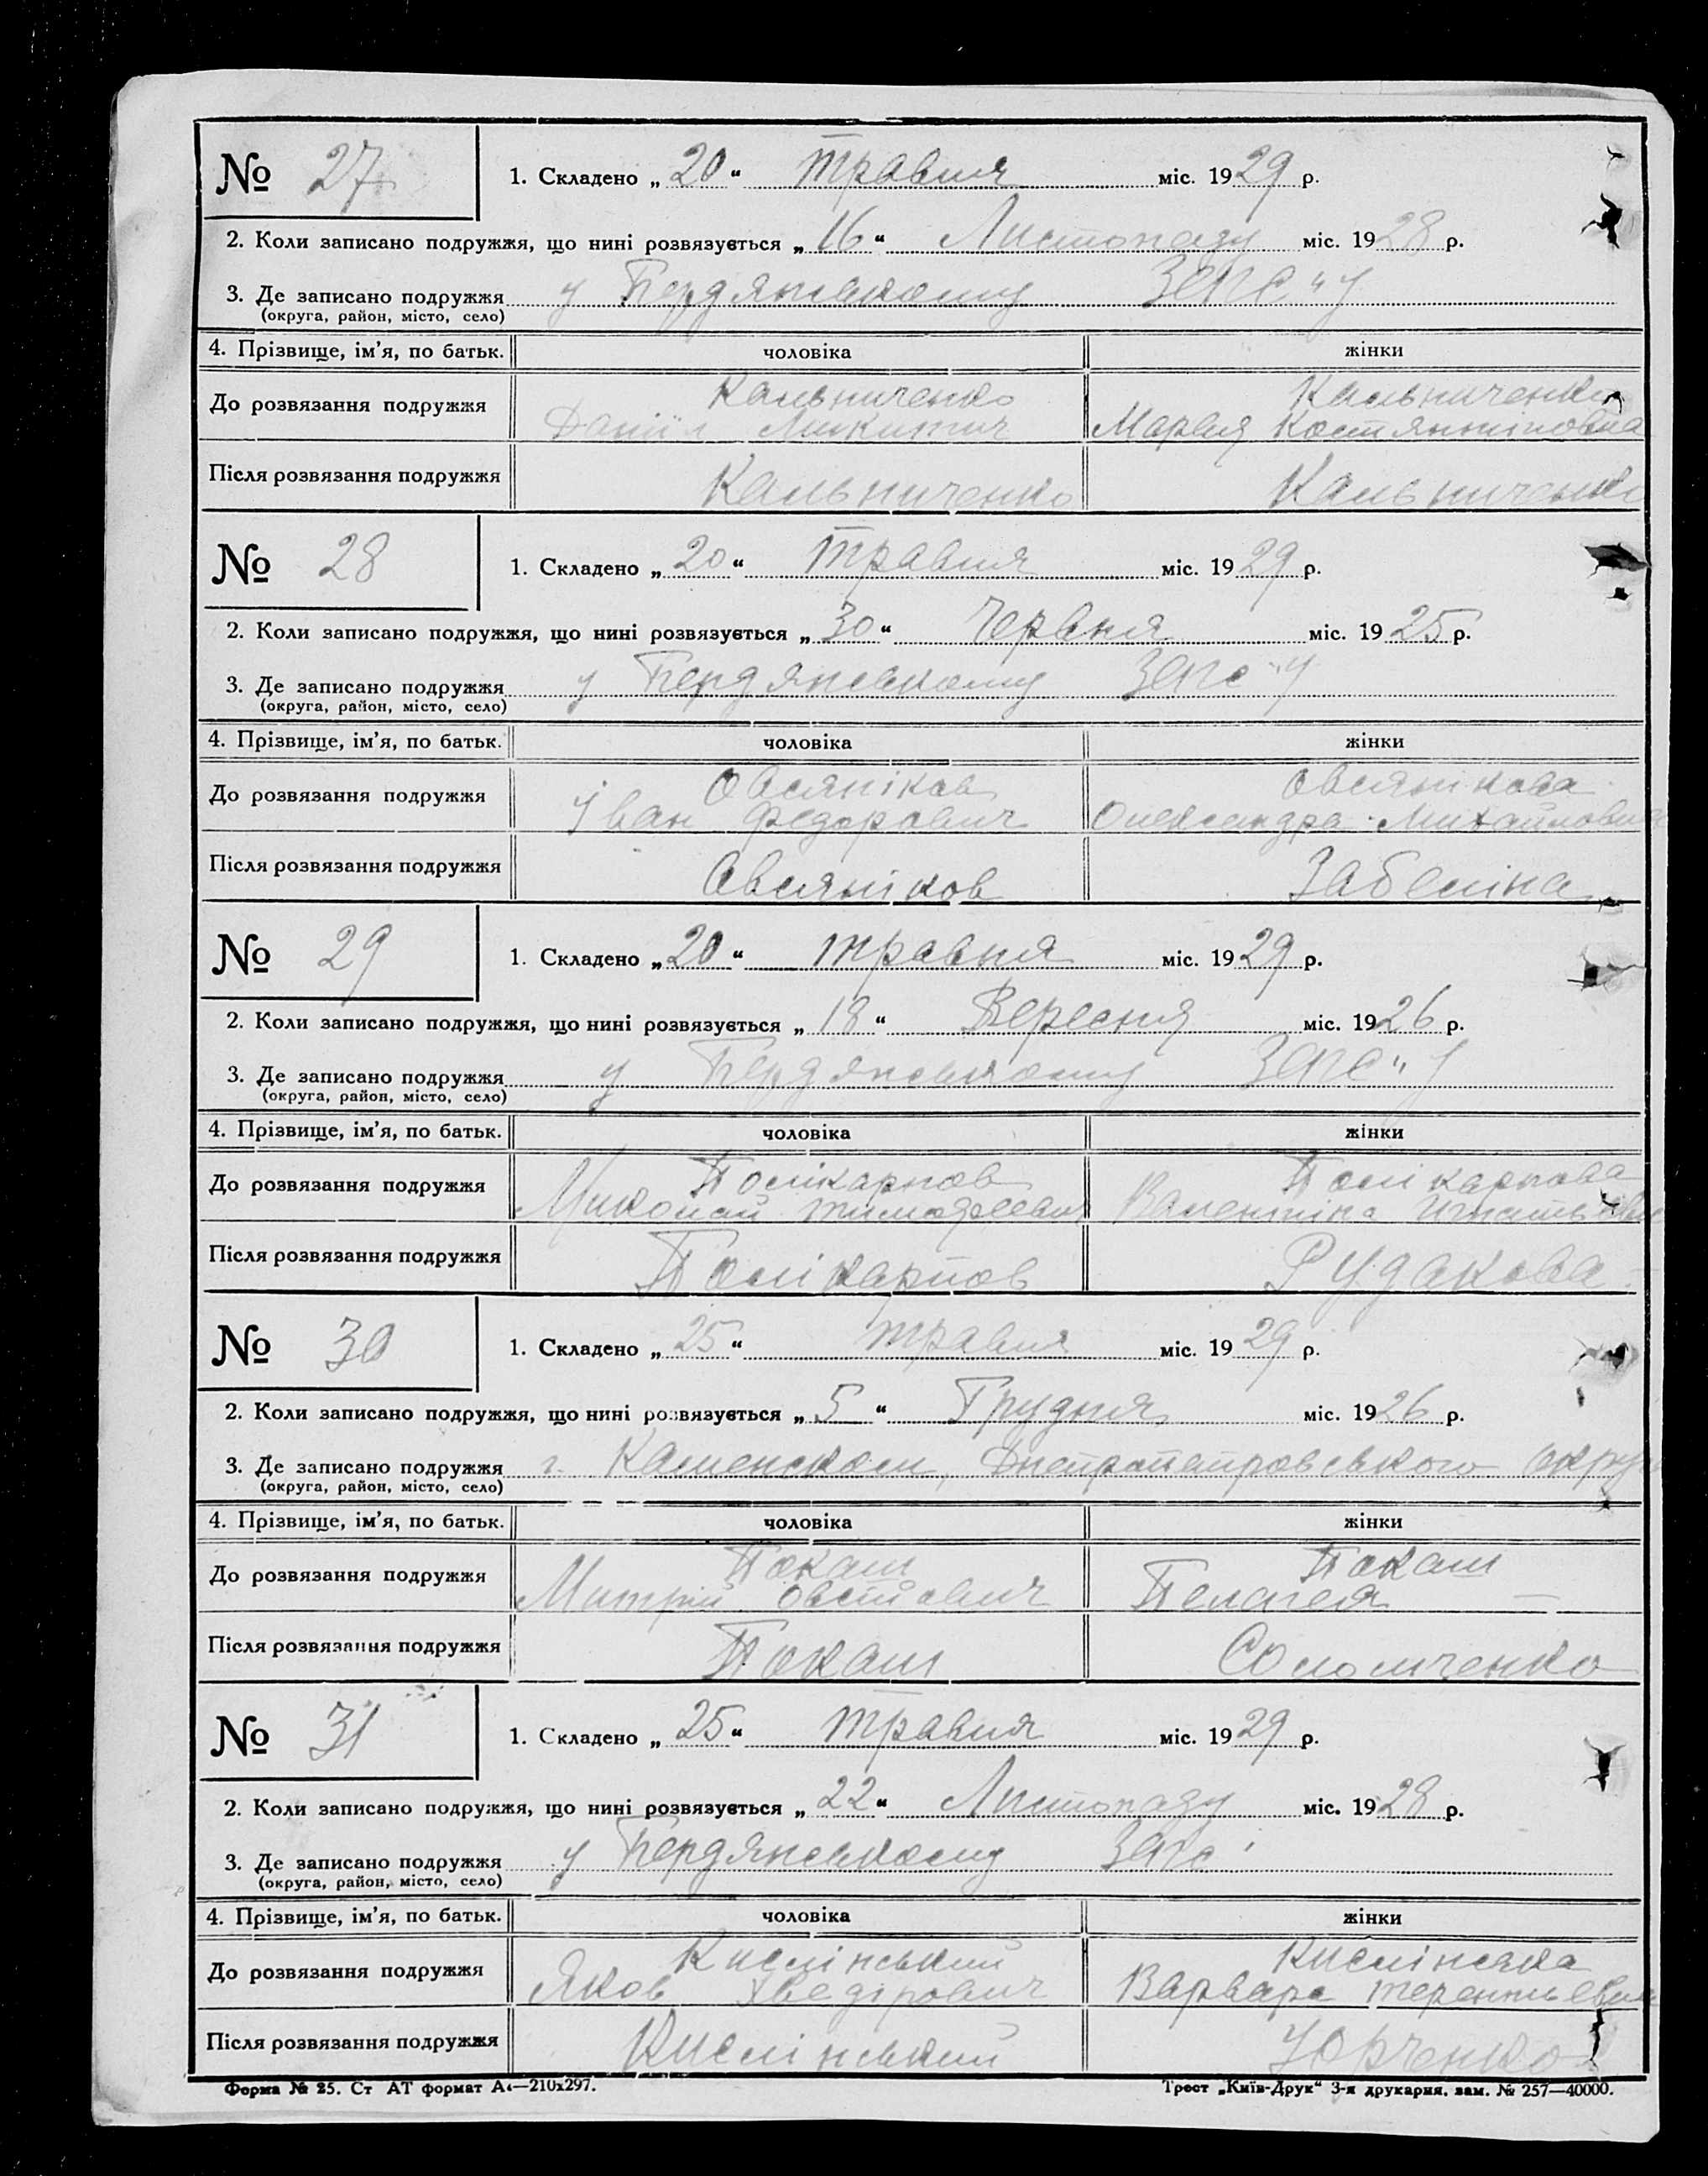 № 27 1. Складено „20“ травня міс. 1929 р.
2. Коли записано подружжя, що нині розвязується „16“ Листопаду міс. 1928 р.
3. Де записано подружжя у Бердянському Загс"у
(округа, район, місто, село)
4. Прізвище, ім’я, по батьк. чоловіка жінки
До розвязання подружжя Кальниченко Кальниченко
Даніїл Микитич Марія Костянтіновна
Після розвязання подружжя Кальниченко Кальниченко
№ 28 1. Складено „20“ травня міс. 1929 р.
2. Коли записано подружжя, що нині розвязується „30“ Червня міс. 1925 р.
3. Де записано подружжя у Бердянському Загс"у
(округа, район, місто, село)
4. Прізвище, ім’я, по батьк. чоловіка жінки
До розвязання подружжя Овсяніков Овсянікова
Іван Федорович Олександра Михайловна
Після розвязання подружжя Овсяніков Забеліна
№ 29 1. Складено „20“ травня міс. 1929 р.
2. Коли записано подружжя, що нині розвязується „18“ Вересня міс. 1926 р.
3. Де записано подружжя у Бердянському Загс"у
(округа, район, місто, село)
4. Прізвище, ім’я, по батьк. чоловіка жінки
До розвязання подружжя Полікарпов Полікарпова
Миколай Тимофеевич Валентіна
Після розвязання подружжя Полікарпов Рудакова
№ 30 1. Складено „25“ травня міс. 1929 р.
2. Коли записано подружжя, що нині розвязується „5“ Грудня міс. 1926 р.
3. Де записано подружжя г. Каменском, Днепропетровського округу
(округа, район, місто, село)
4. Прізвище, ім’я, по батьк. чоловіка жінки
До розвязання подружжя Покаш Покаш
Митрій Пелагея —
Після розвязання подружжя Покаш Соломченко
№ 31 1. Складено „25“ травня міс. 1929 р.
2. Коли записано подружжя, що нині розвязується „22“ Листопаду міс. 1928 р.
3. Де записано подружжя у Бердянському Загс'
(округа, район, місто, село)
4. Прізвище, ім’я, по батьк. чоловіка жінки
До розвязання подружжя Кислінський Кислінська
Яков Хведірович Варвара Терентьевна
Після розвязання подружжя Кислінський Юрченко
Форма № 25. Ст АТ формат А4—210x297. Трест „Київ-Друк“ 3-я друкарня, зам. № 257—40000.